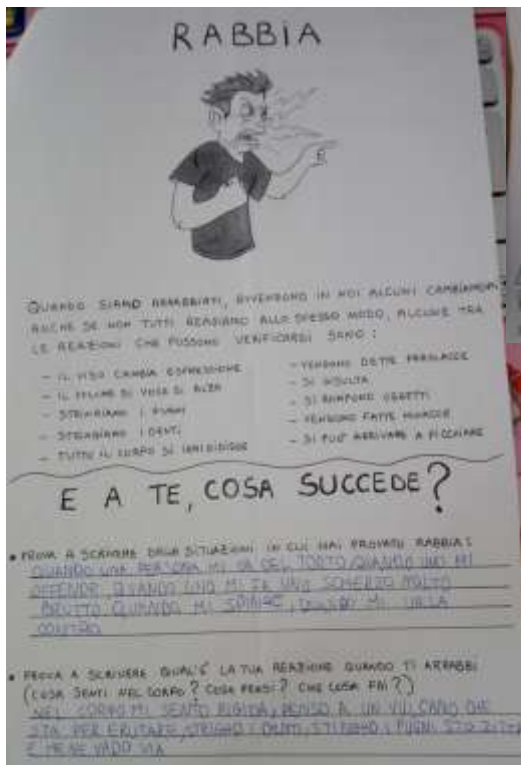 RABBIA
QUANDO SIAMO ARRABBIATI, AVVENGONO IN NOI ALCUNI CAMBIAMENTI
ANCHE SE NON TUTTI REAGIAMO ALLO STESSO MODO, ALCUNE TRA
LE REAZIONI CHE POSSONO VERIFICARSI SONO:
- IL VISO CAMBIA ESPRESSIONE
- IL VOLUME DI VOCE SI ALZA
- STRINGIAMO I PUGNI
- STRINGIAMO I DENTI
- TUTTO IL CORPO SI IRRIGIDISCE
- VENGONO DETTE PAROLACCE
- SI INSULTA
- SI ROMPONO OGGETTI
- VENGONO FATTE MINACCE
- SI PUÒ ARRIVARE A PICCHIARE
E A TE, COSA SUCCEDE?
• PROVA A SCRIVERE DELLE SITUAZIONI IN CUI HAI PROVATO RABBIA:
QUANDO UNA PERSONA MI DA DEL TORTO, QUANDO UNO MI
OFFENDE, QUANDO UNO MI FA UNO SCHERZO MOLTO
BRUTTO QUANDO MI SPINGE, QUANDO MI URLA
CONTRO
• PROVA A SCRIVERE QUAL'È LA TUA REAZIONE QUANDO TI ARRABBI
(COSA SENTI NEL CORPO? COSA PENSI? CHE COSA FAI?)
NEL CORPO MI SENTO RIGIDA, PENSO A UN VULCANO CHE
STA PER ERUTARE, STRINGO I DENTI, STRINGO I PUGNI STO ZITTA
E ME NE VADO VIA